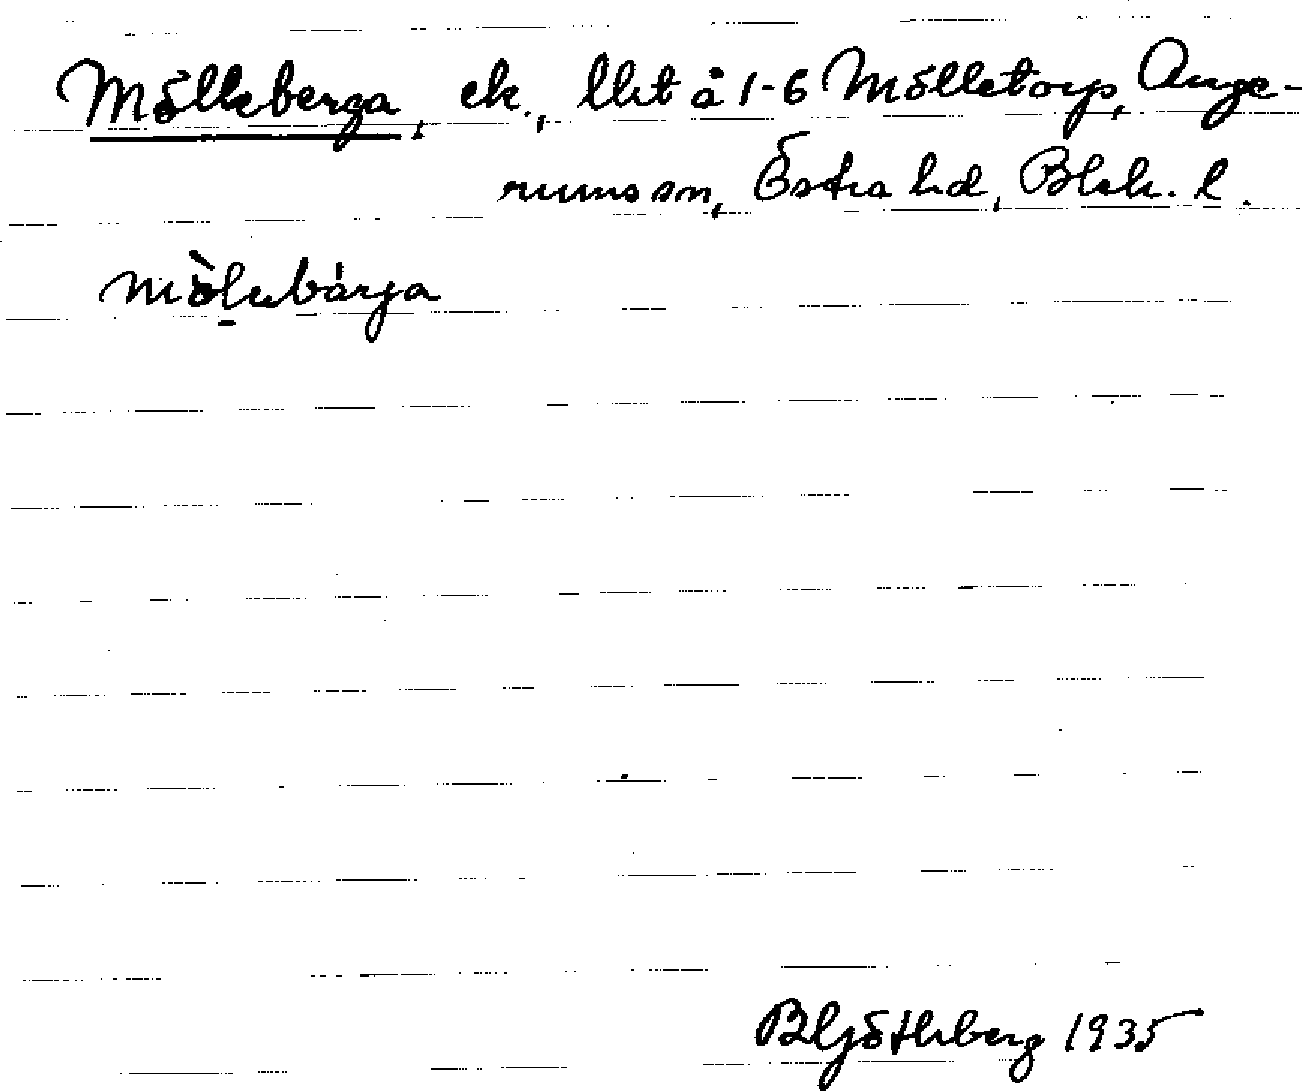 Mölleberga, ek., lht å 1-6 Mölletorp, Auge-
rums sn, Östra hd, Blek. l.
mö̀lebárja
B Götlberg 1935